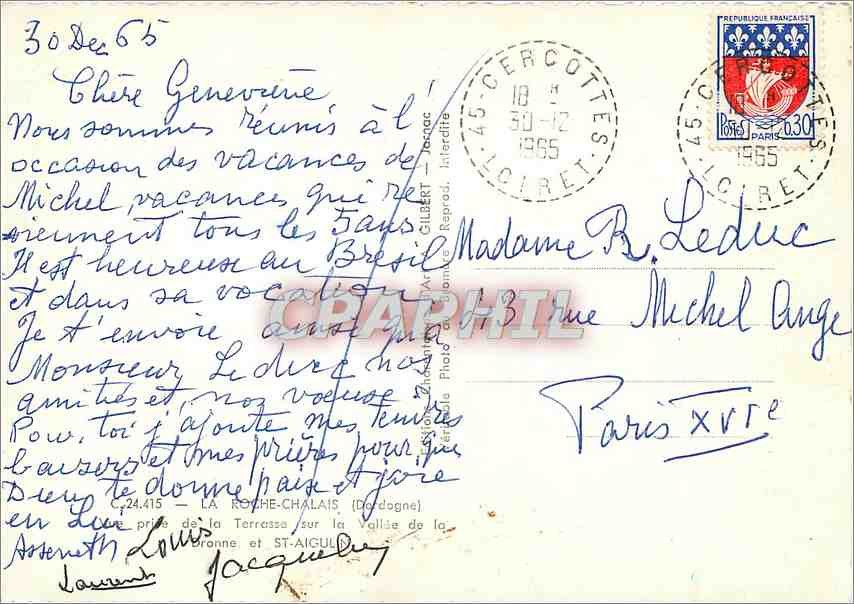 30 Dec 65
Chère Geneviève
Nous sommes réunis à l'
occasion des vacances de
Michel, vacances qui re
viennent tous les 5 ans
Il est heureuse au Brésil
et dans sa vocation
Je t'envoie ainsi qu'à
Monsieur Leduc nos
amitiés et, nos voeux
Pour toi j'ajoute mes tendres
baisers et mes prières pour que
Dieu te donne paix et joie
en Lui
Asseneth Louis
Laurent Jacqueline
C.24.415 — LA ROCHE-CHALAIS (Dordogne)
Vue prise de la Terrasse sur la Vallée de la
Dronne et ST-AIGULIN
GILBERT — Jarnac
Véritable Photo au Bromure Reprod. Interdite
CPAPHIL
REPUBLIQUE FRANÇAISE
Postes 0,30
PARIS
45 - CERCOTTES
18 H
30-12
1965
LOIRET
45 - CERCOTTES
18 H
1965
LOIRET
Madame R. Leduc
43 rue Michel Ange
Paris XVIe